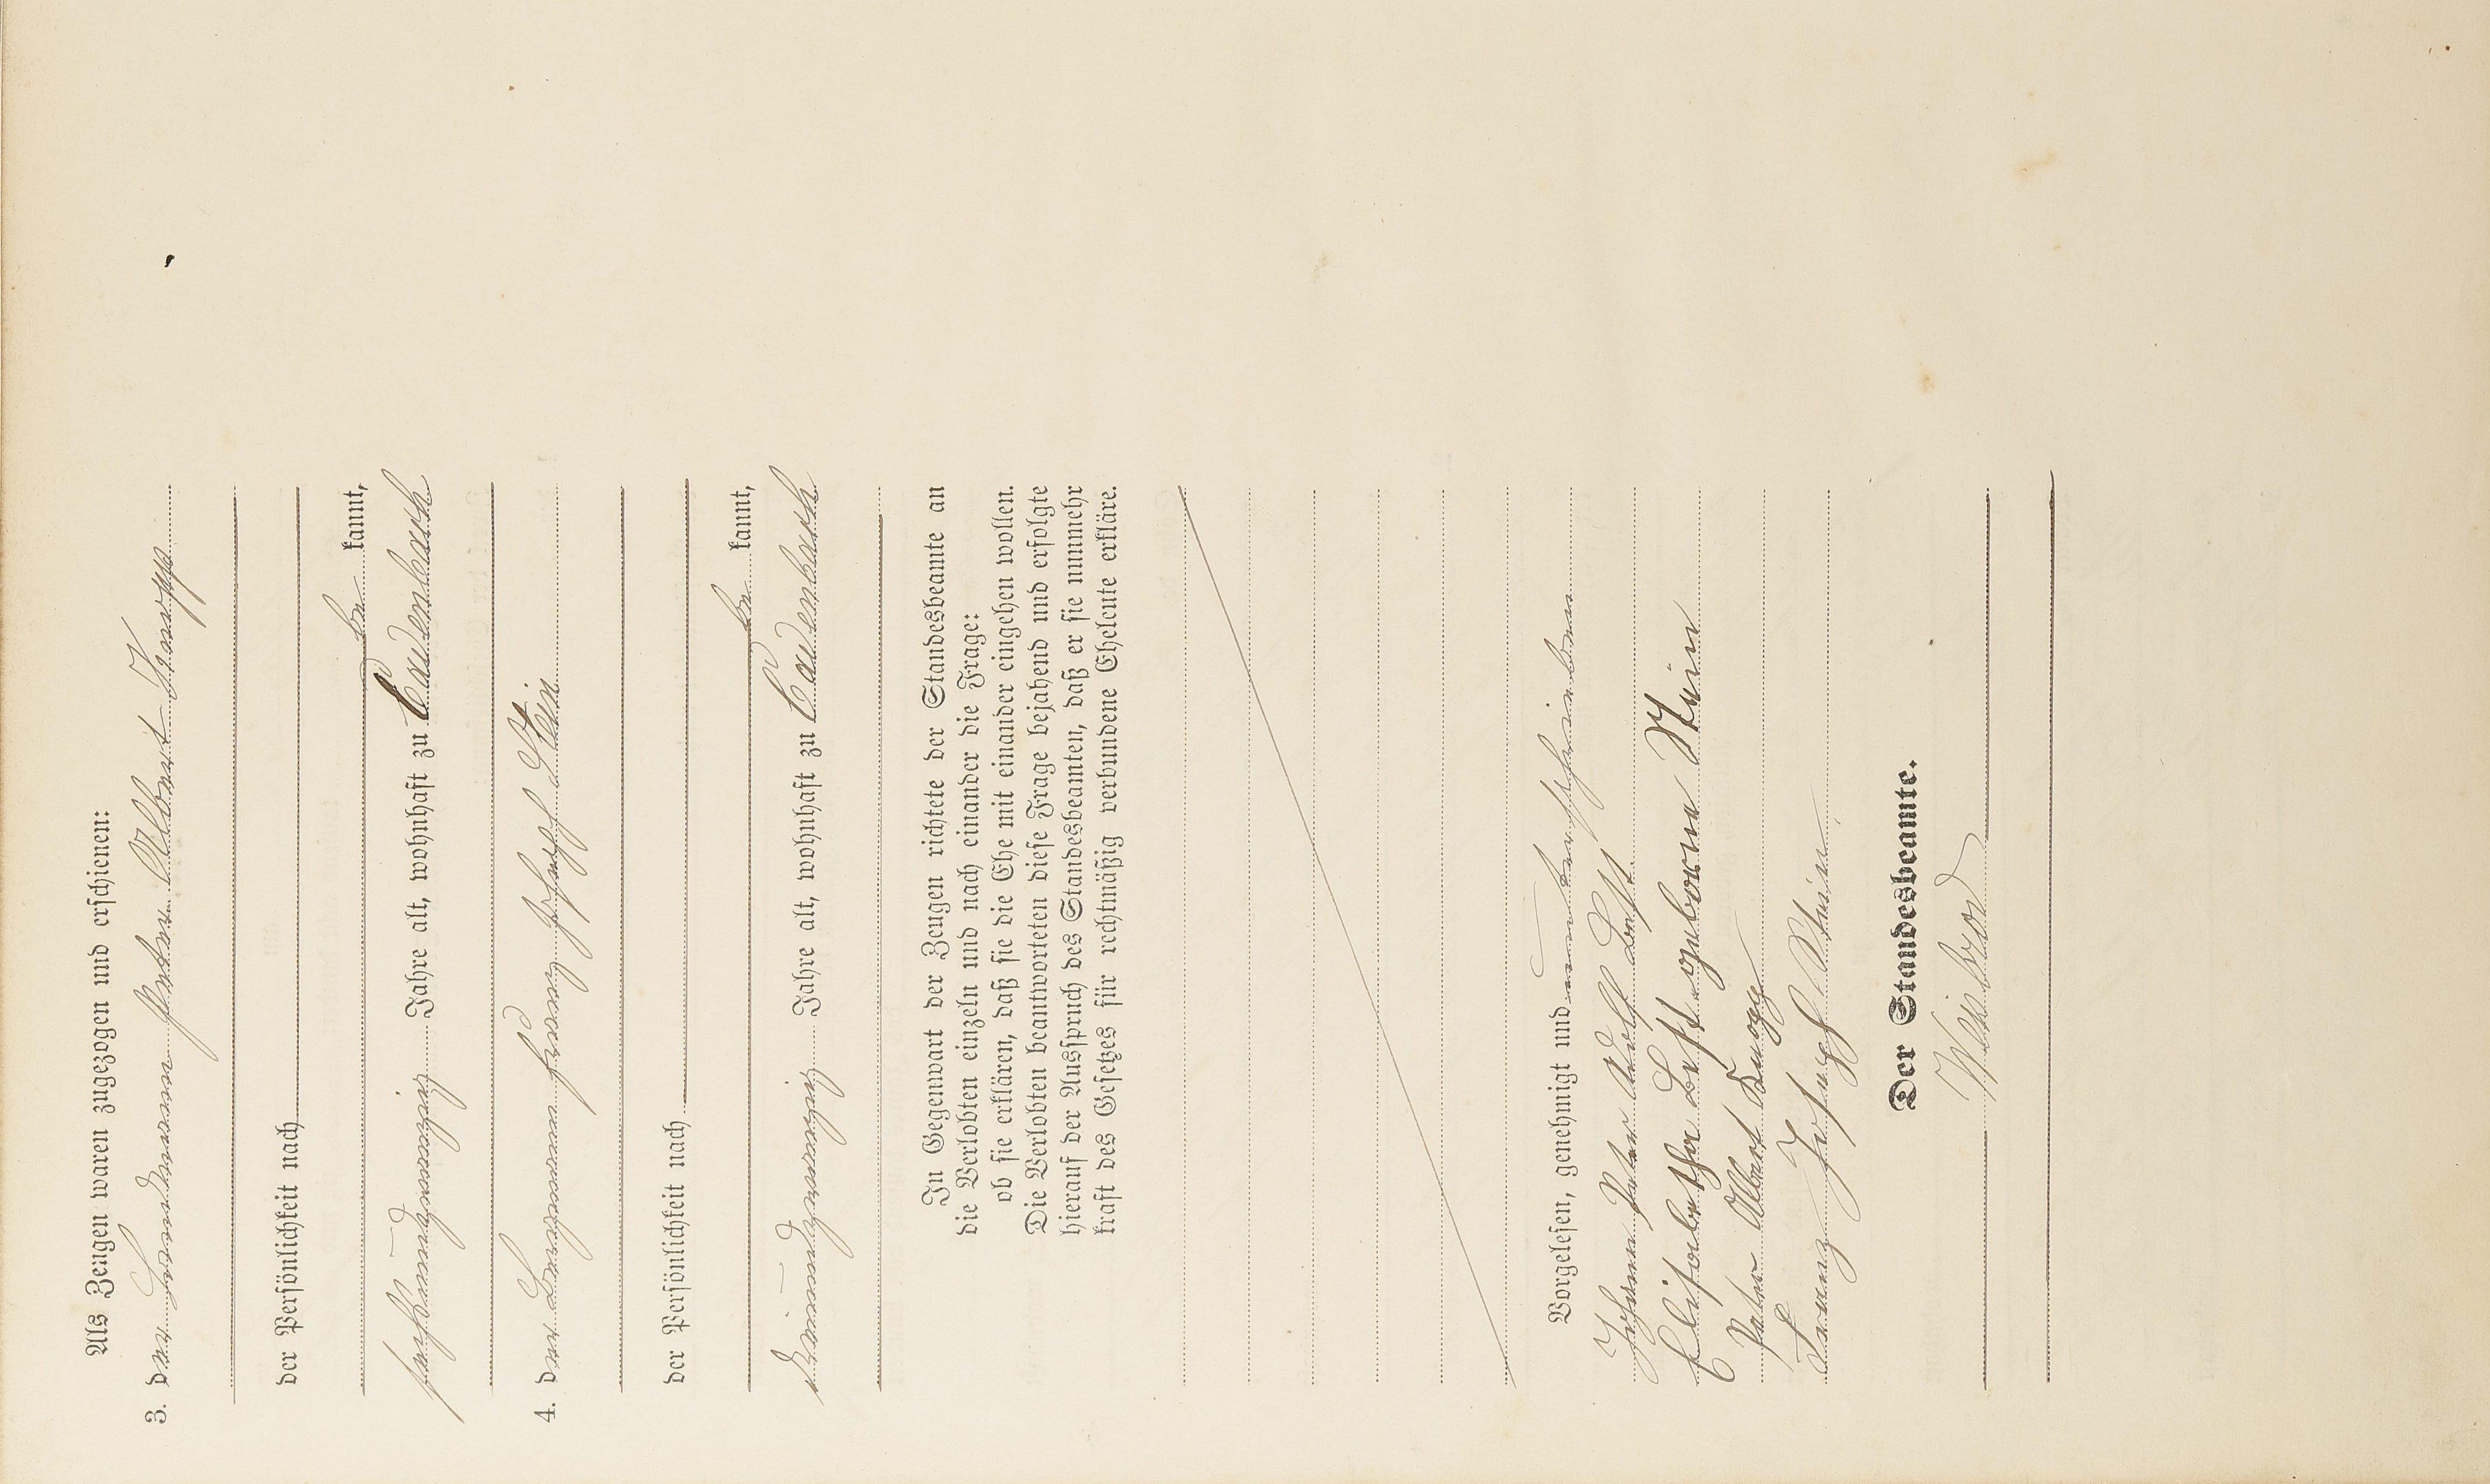 Als Zeugen waren zugezogen und erschienen:
3. der Landmann Peter Albert Knapp
der Persönlichkeit nach
be kannt,
sechsundzwanzig Jahre alt, wohnhaft zu Caudenbach
4. der Landmann Franz Joseph Stein
der Persönlichkeit nach
be kannt,
dreiundzwanzig Jahre alt, wohnhaft zu Caudenbach
In Gegenwart der Zeugen richtete der Standesbeamte an
die Verlobten einzeln und nach einander die Frage:
ob sie erklären, daß sie die Ehe mit einander eingehen wollen.
Die Verlobten beantworteten diese Frage bejahend und erfolgte
hierauf der Ausspruch des Standesbeamten, daß er sie nunmehr
kraft des Gesetzes für rechtmäßig verbundene Eheleute erkläre.
Vorgelesen, genehmigt und unterschrieben
Johann Peter Adolf
Elisabetha geborene Stein
Peter Albert Knapp
Franz Joseph Stein
Der Standesbeamte.
Weisbrod